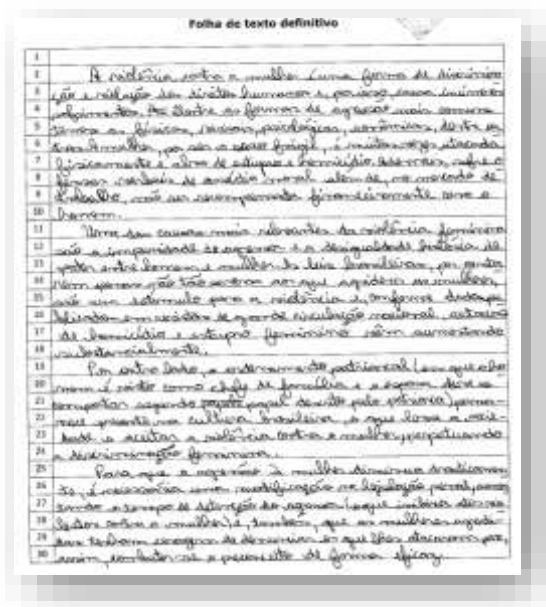 Folha de texto definitivo
1
2 A violência contra a mulher é uma forma de discrimina-
3 ção e violação dos direitos humanos e, por isso, causa inúmeros
4 sofrimentos. Dentre as formas de agressão mais comuns
5 temos as físicas, sexuais, psicológicas, econômicas, dentre ou
6 tras. A mulher, por ser o sexo frágil, é muitas vezes atacada
7 fisicamente e alvo de estupro e homicídio. Ademais, sofre
8 formas verbais de assédio moral além de, no mercado de
9 trabalho, não ser recompensada financeiramente como o
10 homem.
11 Uma das causas mais relevantes da violência feminina
12 são a impunidade do agressor e a desigualdade histórica de
13 poder entre homem e mulher. As leis brasileiras, por
14 não tão contra ao que agridem as mulheres,
15 são um estímulo para a violência e, conforme dados pu
16 blicados em revistas de grande circulação nacional, os casos
17 de homicídio e estupro feminino vêm aumentando
18 substancialmente.
19 Por outro lado, o ordenamento patriarcal (em que o ho
20 mem é visto como chefe de família e a esposa deve se
21 comportar segundo papel descrito pelo patriarca) perma-
22 nece presente na cultura brasileira, o que leva a socie-
23 dade a aceitar a violência contra a mulher, perpetuando
24 a discriminação feminina.
25 Para que a agressão à mulher diminua drasticamen
26 te, é necessária uma modificação na legislação penal, aumen
27 tando o tempo de detenção do agressor (o que inibiria
28 contra a mulher) e, também, que as mulheres agredi
29 das tenham coragem de denunciar os que lhes atacaram para,
30 assim, combater-se o preconceito de forma eficaz.